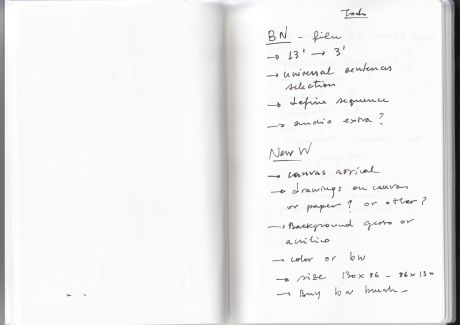 BN - film
→ 13' → 3'
→ universal sentences
selection
→ define sequence
→ audio extra?
New W
→ canvas arrival
→ drawings on canvas
or paper? or other?
→ Background gesso or
acrilico
→ color or bw
→ size 130x86 - 86x130
→ Buy bw brush -